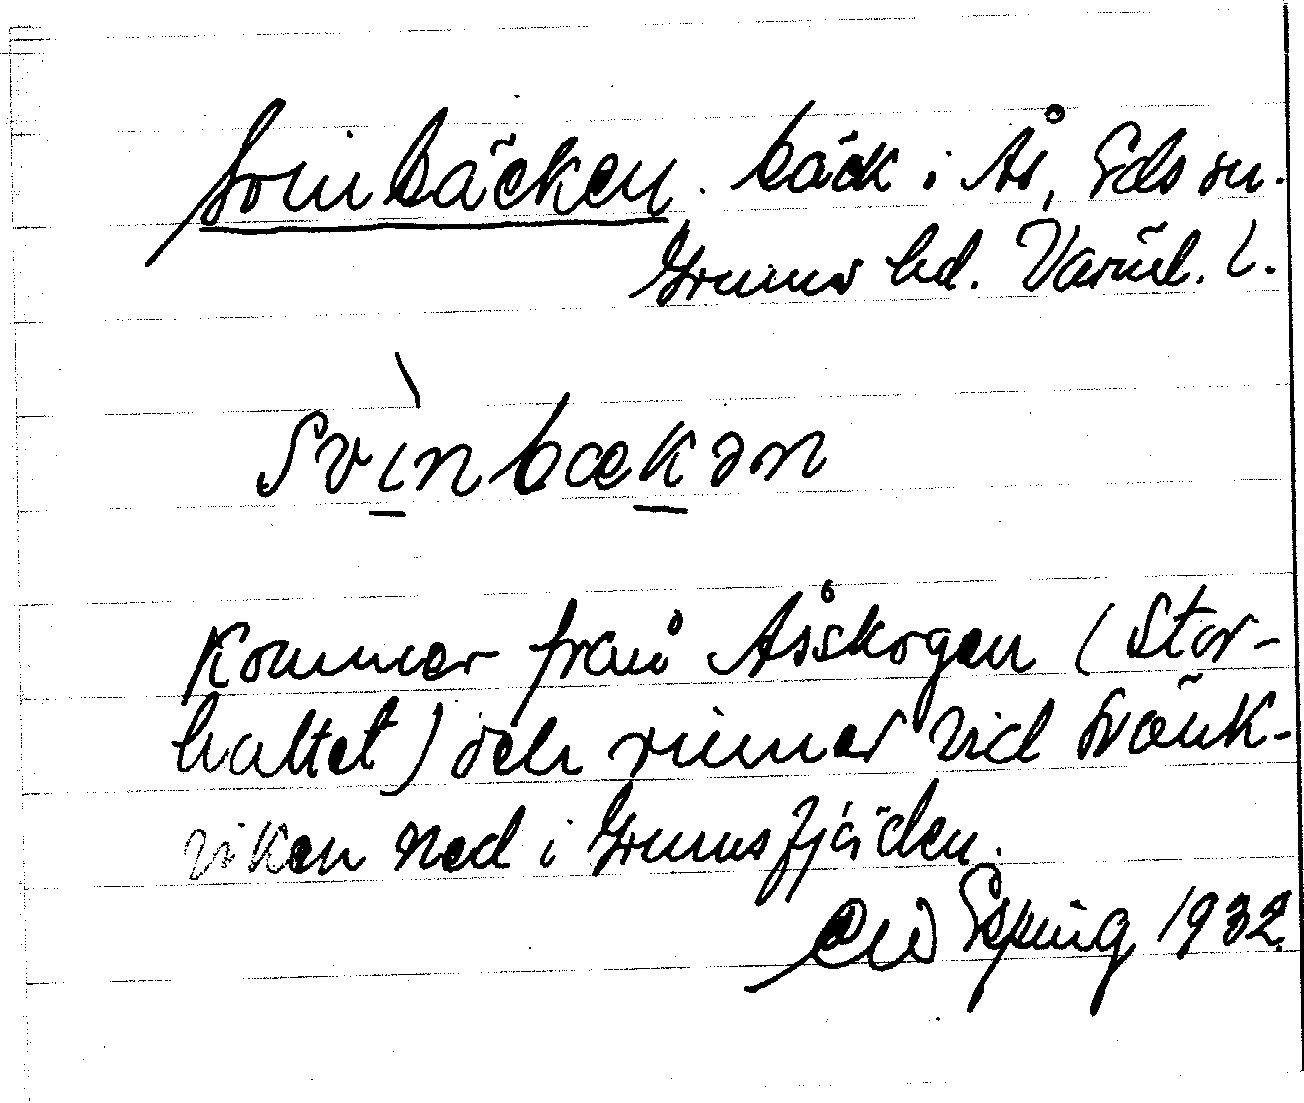 Svinbäcken. bäck i Ås, Eds sn.
Grums hd. Värml. l.
svìnbækən
Kommer från Åsskogen (Stor-
hultet) och rinner vid Svänk-
viken ned i Grumsfjärden.
Esping 1932.